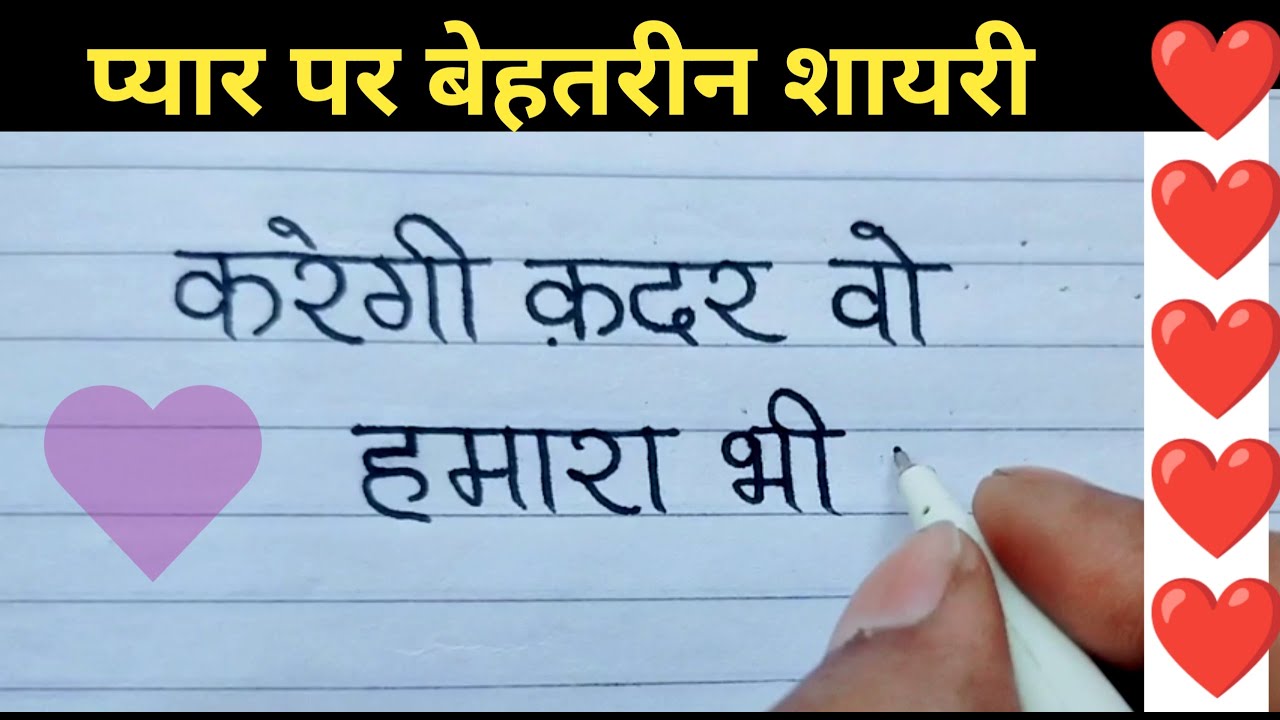 प्यार पर बेहतरीन शायरी
करेगी क़दर वो
हमारा भी